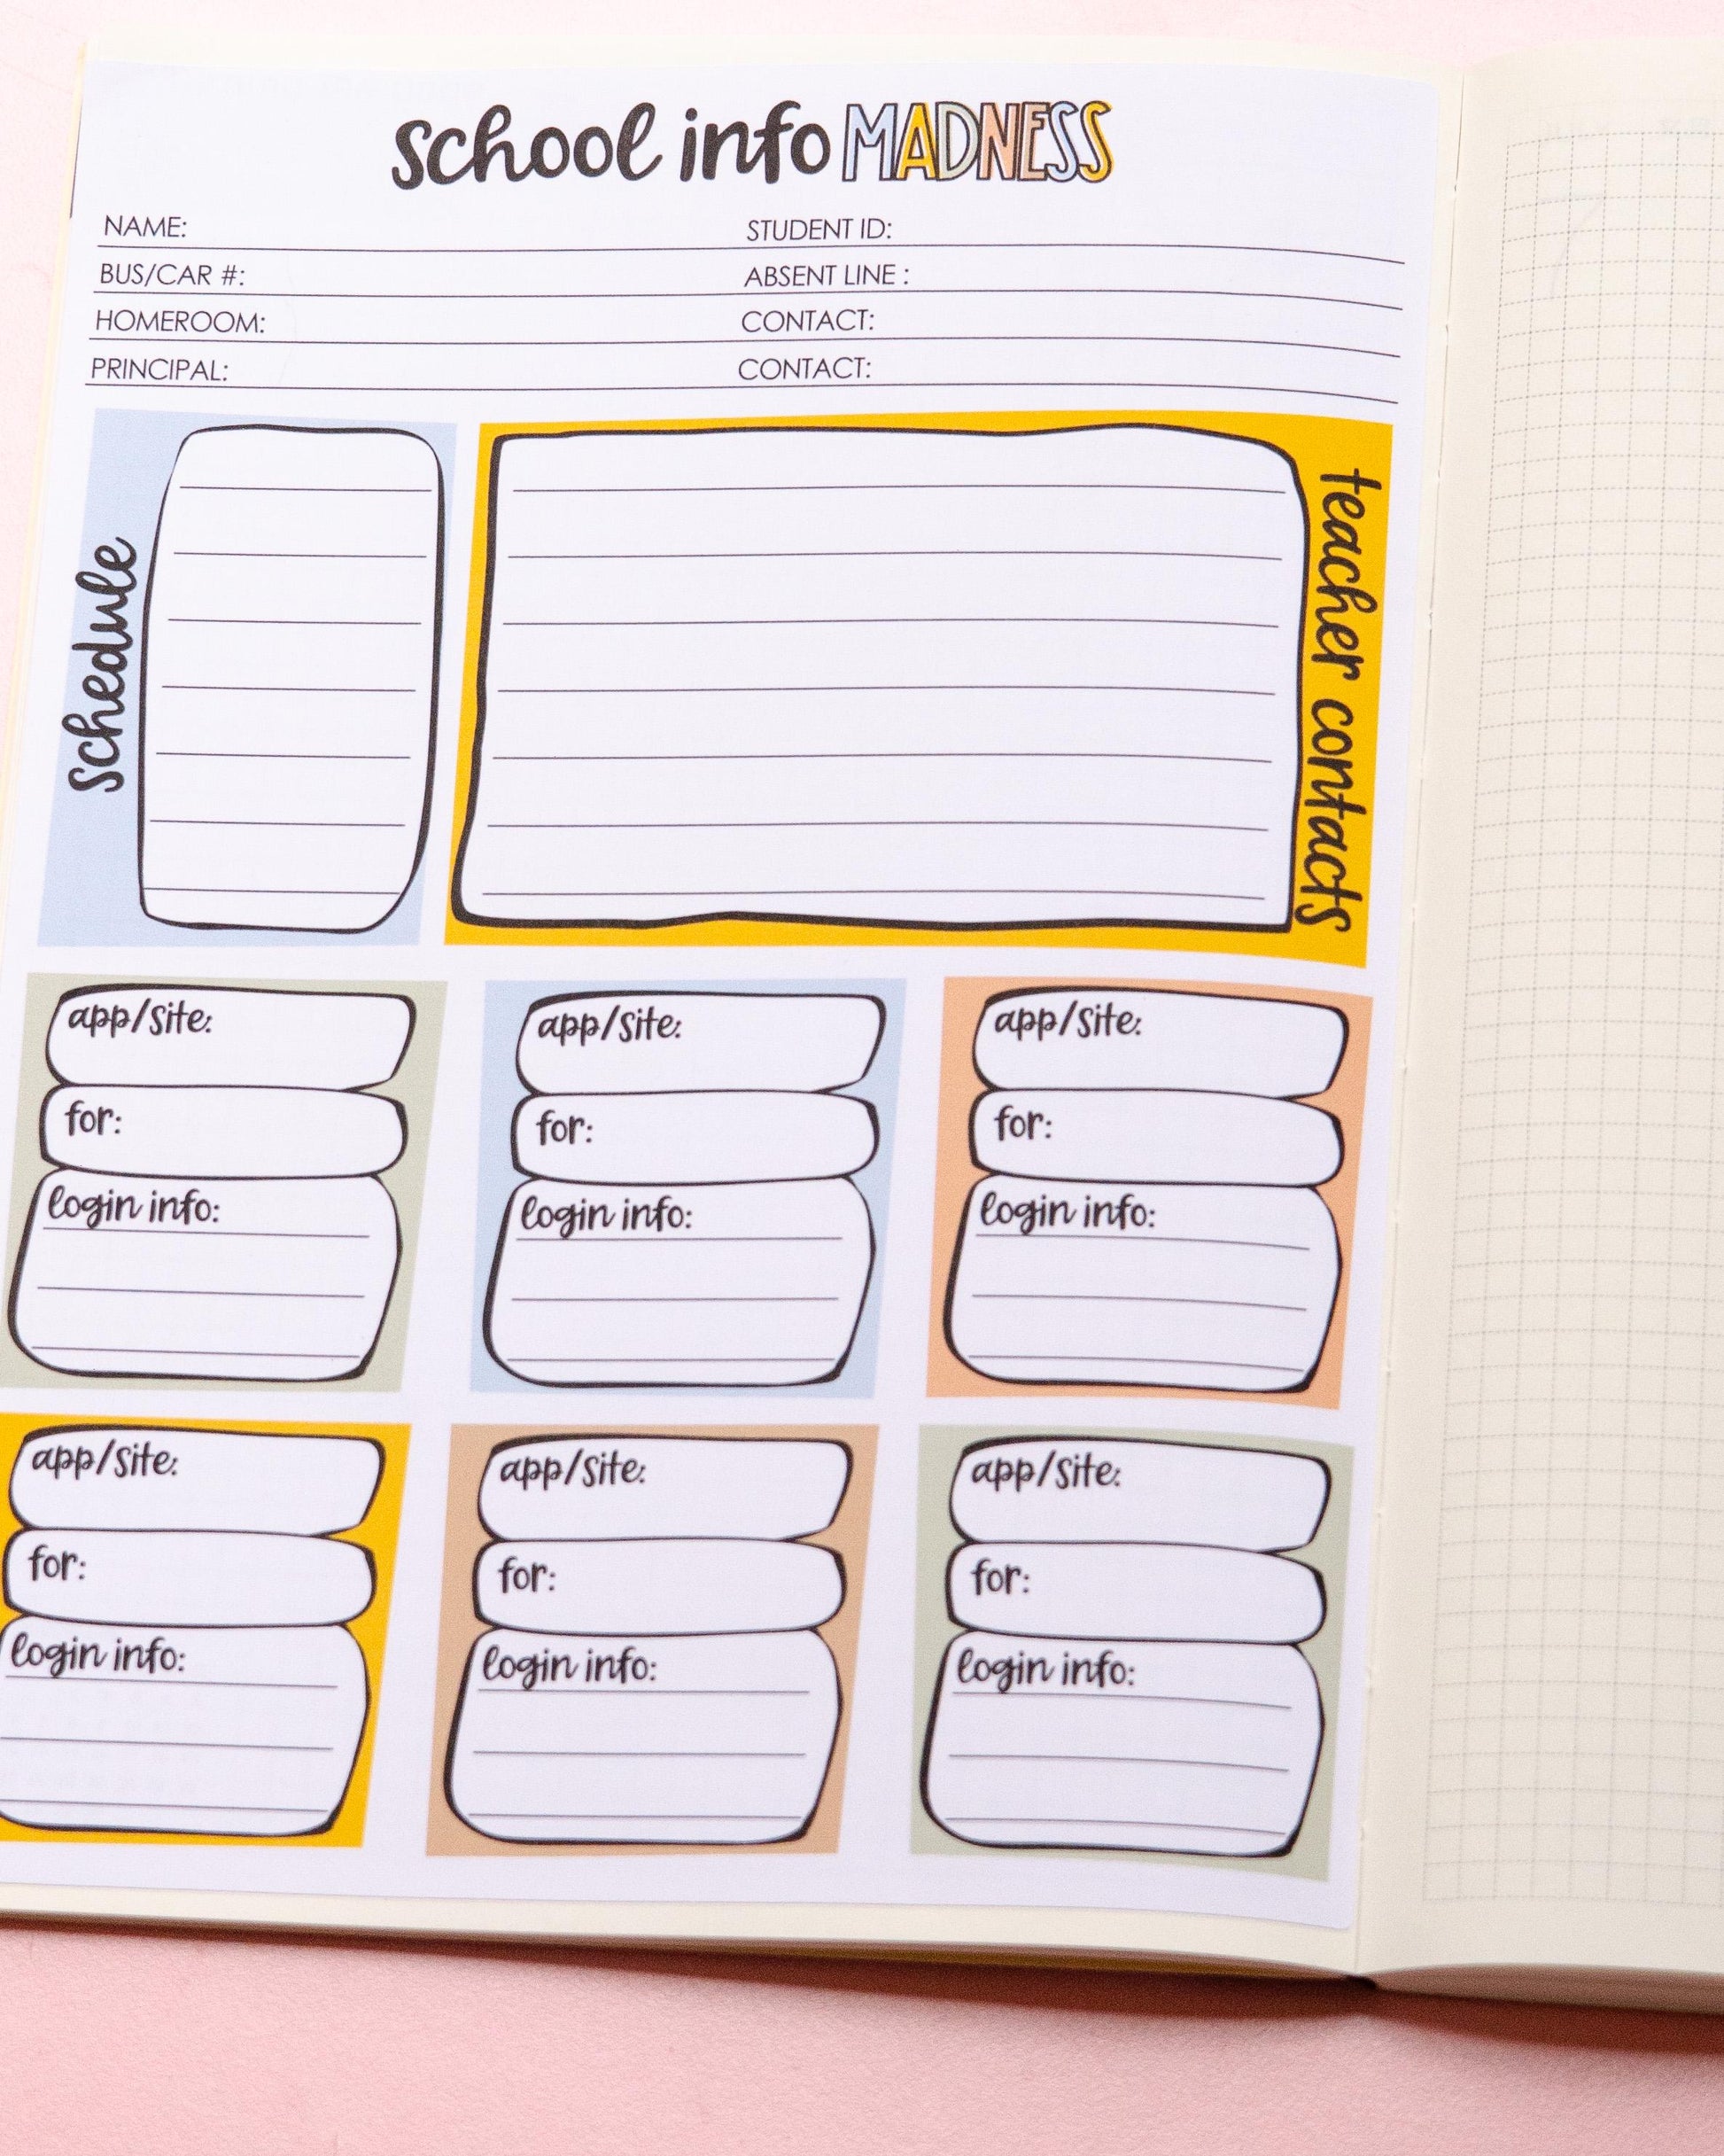 school info MADNESS
NAME: STUDENT ID:
BUS/CAR #: ABSENT LINE :
HOMEROOM: CONTACT:
PRINCIPAL: CONTACT:
schedule
teacher contacts
app/site:
for:
login info:
app/site:
for:
login info:
app/site:
for:
login info:
app/site:
for:
login info:
app/site:
for:
login info:
app/site:
for:
login info: